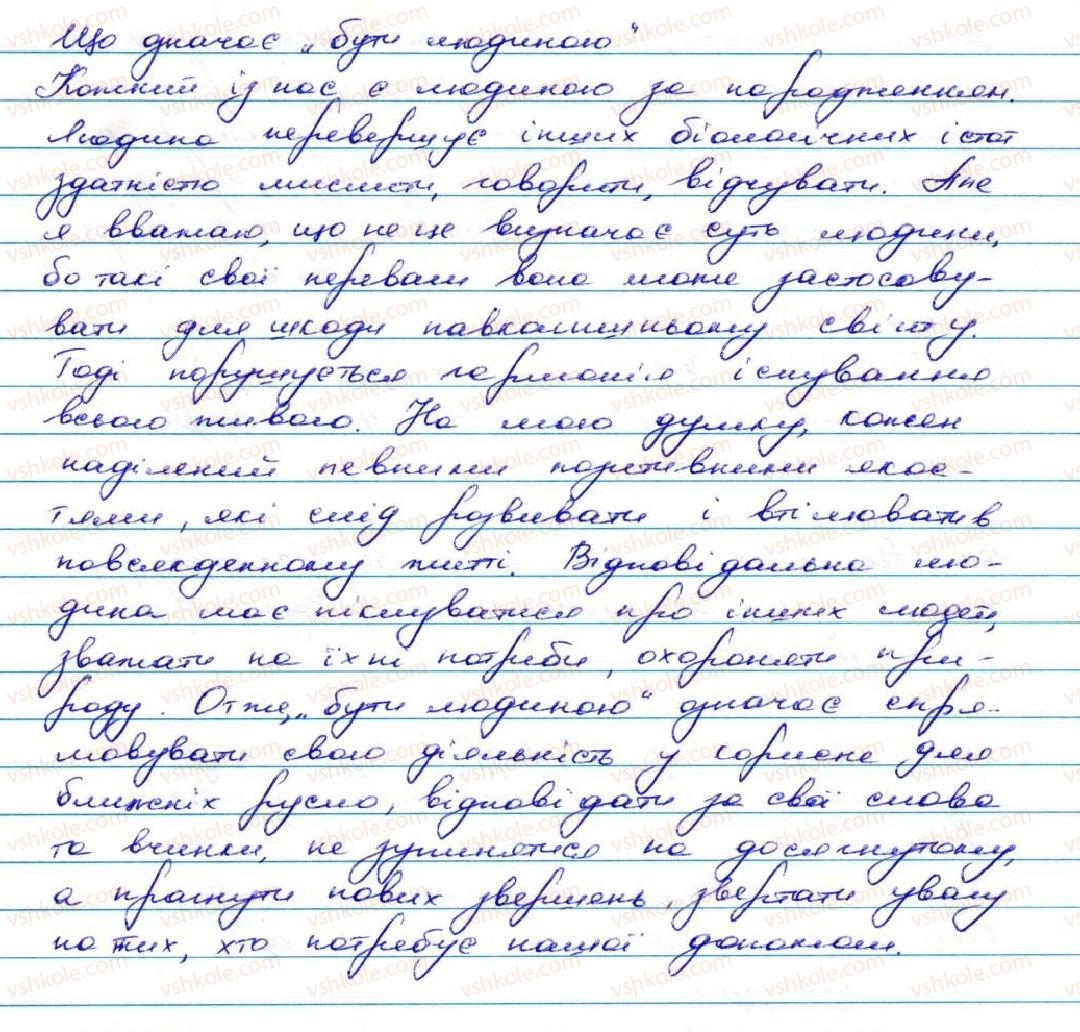 Що означає „бути людиною“
Кожний із нас є людиною за народженням.
Людина перевершує інших біологічних істот
здатністю мислити, говорити, відчувати. Але
я вважаю, що не це визначає суть людини,
бо такі свої переваги вона може застосову-
вати для шкоди навколишньому світу.
Тоді порушується гармонія існування
всього живого. На мою думку, кожен
наділений певними позитивними якос-
тями, які слід розвивати і втілювати в
повсякденному житті. Відповідальна лю-
дина має піклуватися про інших людей,
зважати на їхні потреби, охороняти при-
роду. Отже, „бути людиною“ означає спря-
мовувати свою діяльність у корисне для
ближніх русло, відповідати за свої слова
та вчинки, не зупинятися на досягнутому,
а прагнути нових звершень, звертати увагу
на тих, хто потребує нашої допомоги.